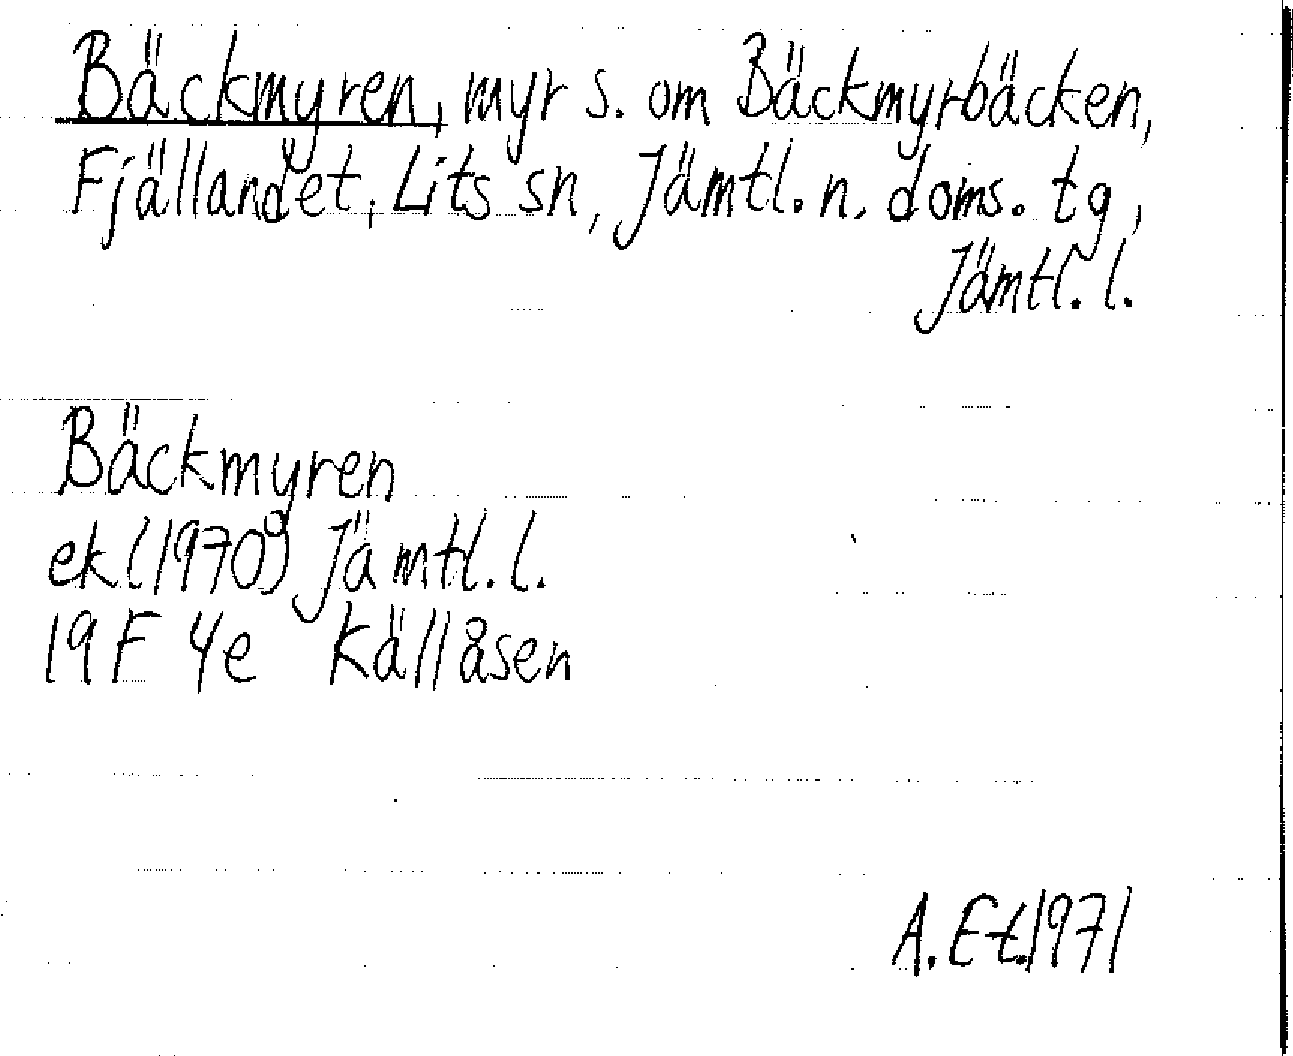 Bäckmyren, myr s. om Bäckmyrbäcken,
Fjällandet, Lits sn, Jämtl. n. doms. tg,
Jämtl. l.
Bäckmyren
ek (1970) Jämtl. l.
19F 4e Källåsen
A. Et. 1971